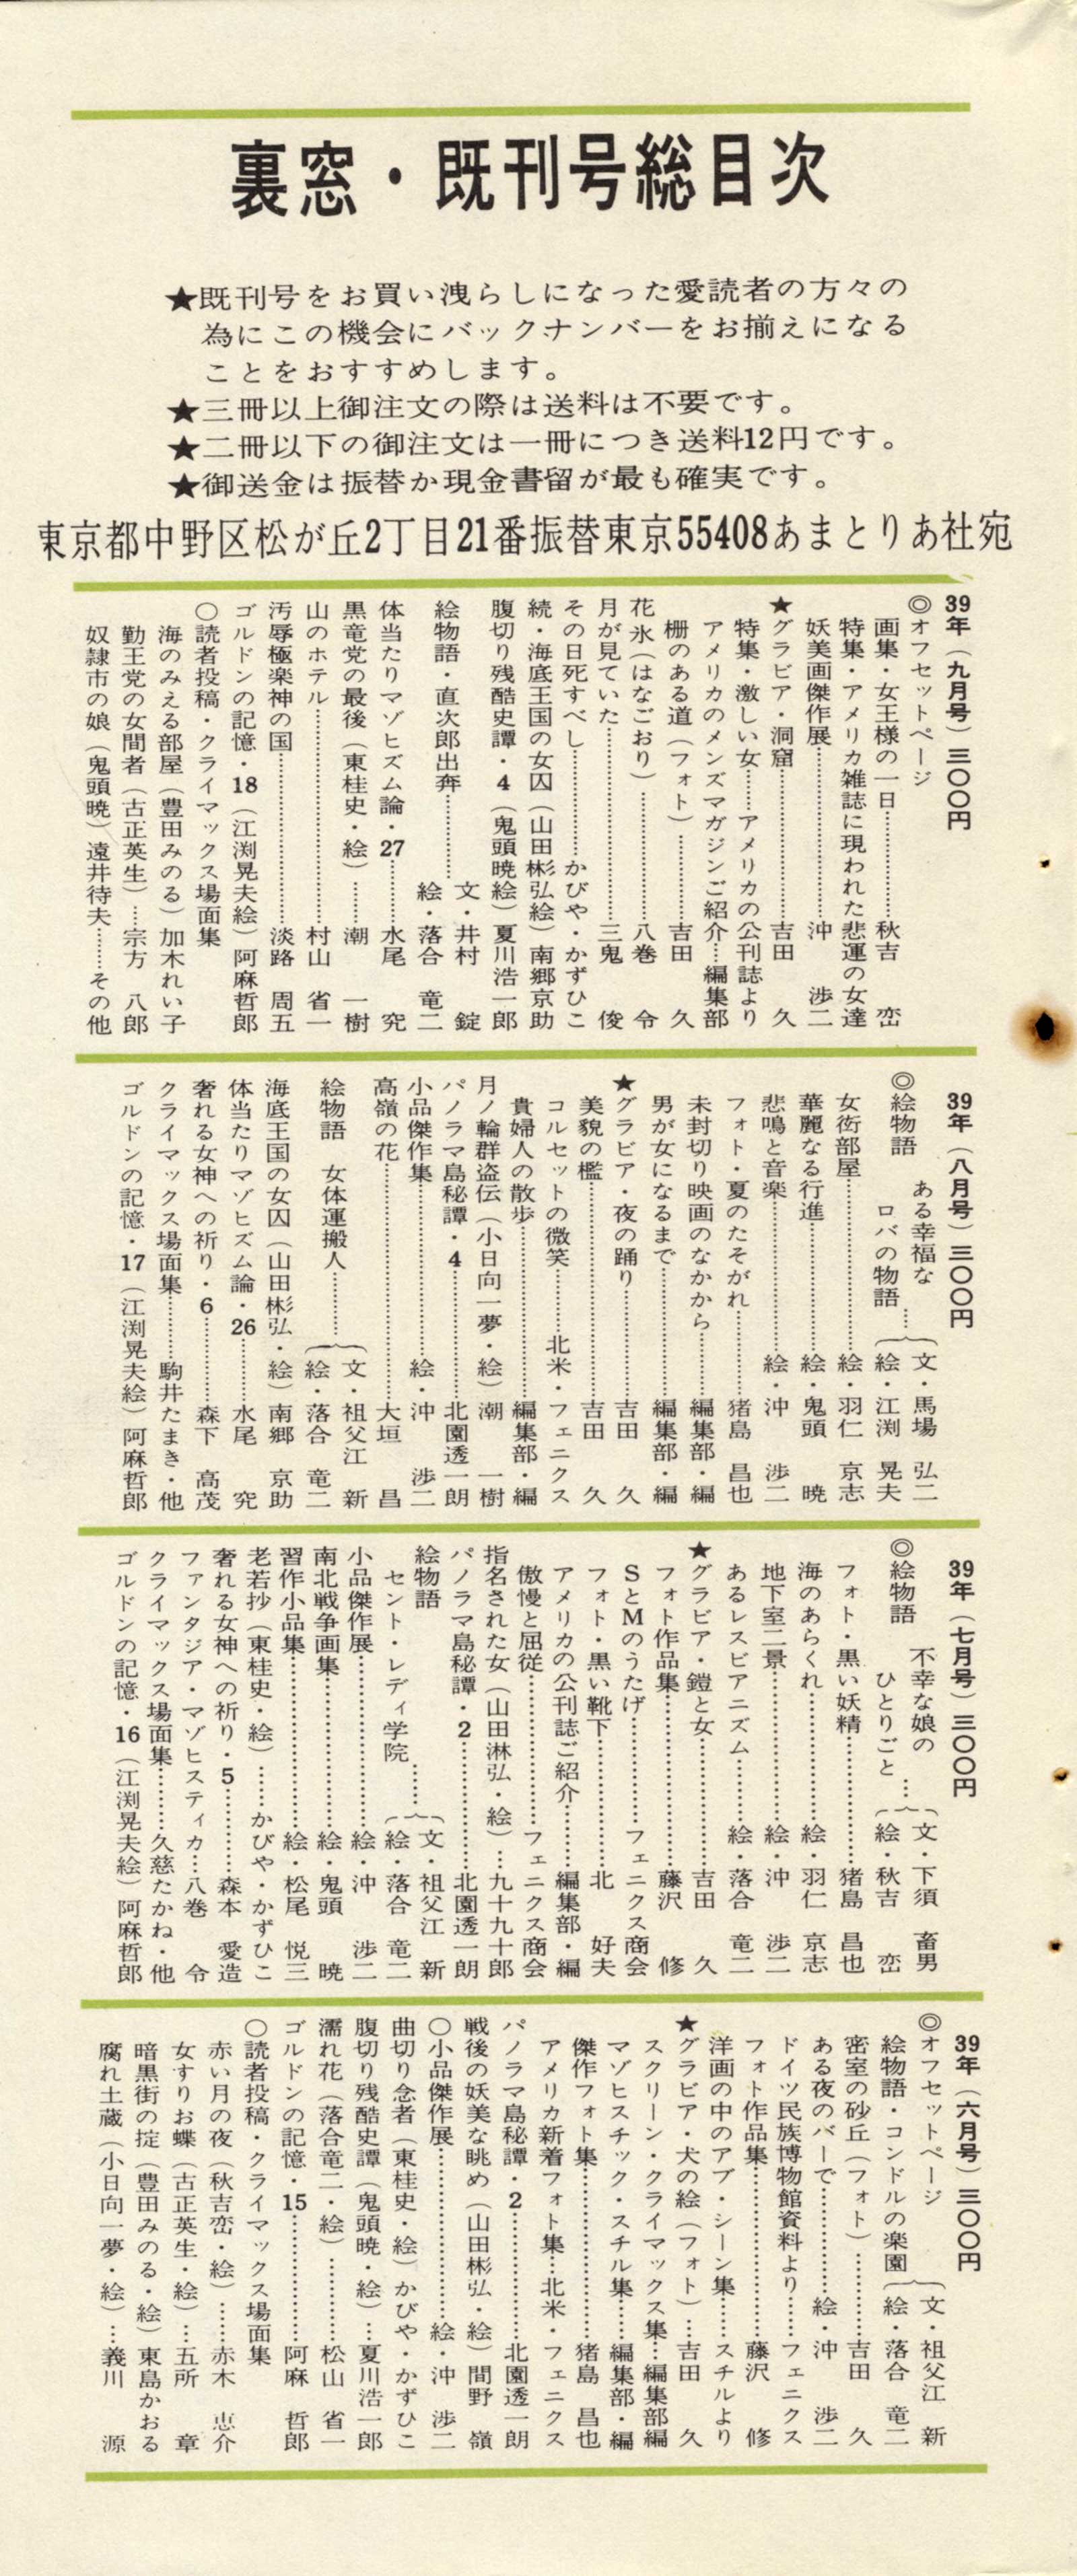 裏窓・既刊号総目次
★既刊号をお買い洩らしになった愛読者の方々の
為にこの機会にバックナンバーをお揃えになる
ことをおすすめします。
★三冊以上御注文の際は送料は不要です。
★二冊以下の御注文は一冊につき送料12円です。
★御送金は振替か現金書留が最も確実です。
東京都中野区松が丘2丁目21番振替東京55408あまとりあ社宛
39年（九月号）三〇〇円
◎オフセットページ
画集・女王様の一日…………秋吉 巒
特集・アメリカ雑誌に現われた悲運の女達
妖美画傑作展…………沖 渉二
★グラビア・洞窟…………吉田 久
特集・激しい女……アメリカの公刊誌より
アメリカのメンズマガジンご紹介…編集部
柵のある道（フォト）…………吉田 久
花氷（はなごおり）…………八巻 令
月が見ていた…………三鬼 俊
その日死すべし…………かびや・かずひこ
続・海底王国の女囚（山田彬弘絵）南郷京助
腹切り残酷史譚・4（鬼頭暁絵）夏川浩一郎
絵物語・直次郎出奔…………文・井村 錠
絵・落合 竜二
体当たりマゾヒズム論・27…………水尾 究
黒竜党の最後（東桂史・絵）……潮 一樹
山のホテル…………村山 省一
汚辱極楽神の国…………淡路 周五
ゴルドンの記憶・18（江渕晃夫絵）阿麻哲郎
〇読者投稿・クライマックス場面集
海のみえる部屋（豊田みのる）加木れい子
勤王党の女間者（古正英生）…宗方 八郎
奴隷市の娘（鬼頭暁）遠井待夫……その他
39年（八月号）三〇〇円
◎絵物語 ある幸福な
ロバの物語…｛文・馬場 弘二
絵・江渕 晃夫
女衒部屋…………絵・羽仁 京志
華麗なる行進…………絵・鬼頭 暁
悲鳴と音楽…………絵・沖 渉二
フォト・夏のたそがれ…………猪島 昌也
未封切り映画のなかから…………編集部・編
男が女になるまで…………編集部・編
★グラビア・夜の踊り…………吉田 久
美貌の檻…………吉田 久
コルセットの微笑…………北米・フェニクス
貴婦人の散歩…………編集部・編
月ノ輪群盗伝（小日向一夢・絵）潮 一樹
パノラマ島秘譚・4…………北園透一朗
小品傑作集…………絵・沖 渉二
高嶺の花…………大垣 昌
絵物語 女体運搬人…………｛文・祖父江 新
絵・落合 竜二
海底王国の女囚（山田彬弘・絵）南郷 京助
体当たりマゾヒズム論・26…………水尾 究
奢れる女神への祈り・6…………森下 高茂
クライマックス場面集…………駒井たまき・他
ゴルドンの記憶・17（江渕晃夫絵）阿麻哲郎
39年（七月号）三〇〇円
◎絵物語 不幸な娘の
ひとりごと…｛文・下須 畜男
絵・秋吉 巒
フォト・黒い妖精…………猪島 昌也
海のあらくれ…………絵・羽仁 京志
地下室二景…………絵・沖 渉二
あるレスビアニズム…………絵・落合 竜二
★グラビア・鎧と女…………吉田 久
フォト作品集…………藤沢 修
SとMのうたげ…………フェニクス商会
フォト・黒い靴下…………北 好夫
アメリカの公刊誌ご紹介…………編集部・編
傲慢と屈従…………フェニクス商会
指名された女（山田淋弘・絵）…九十九十郎
パノラマ島秘譚・2…………北園透一朗
絵物語
セント・レディ学院……｛文・祖父江 新
絵・落合 竜二
小品傑作展…………絵・沖 渉二
南北戦争画集…………絵・鬼頭 暁
習作小品集…………絵・松尾 悦三
老若抄（東桂史・絵）……かびや・かずひこ
奢れる女神への祈り・5…………森本 愛造
ファンタジア・マゾヒスティカ…八巻 令
クライマックス場面集…………久慈たかね・他
ゴルドンの記憶・16（江渕晃夫絵）阿麻哲郎
39年（六月号）三〇〇円
◎オフセットページ
絵物語・コンドルの楽園｛文・祖父江 新
絵・落合 竜二
密室の砂丘（フォト）…………吉田 久
ある夜のバーで…………絵・沖 渉二
ドイツ民族博物館資料より……フェニクス
フォト作品集…………藤沢 修
洋画の中のアブ・シーン集……スチルより
★グラビア・犬の絵（フォト）…吉田 久
スクリーン・クライマックス集…編集部編
マゾヒスチック・スチル集……編集部・編
傑作フォト集…………猪島 昌也
アメリカ新着フォト集…北米・フェニクス
パノラマ島秘譚・2…………北園透一朗
戦後の妖美な眺め（山田彬弘・絵）間野 嶺
〇小品傑作展…………絵・沖 渉二
曲切り念者（東桂史・絵）かびや・かずひこ
腹切り残酷史譚（鬼頭暁・絵）…夏川浩一郎
濡れ花（落合竜二・絵）…………松山 省一
ゴルドンの記憶・15…………阿麻 哲郎
〇読者投稿・クライマックス場面集
赤い月の夜（秋吉巒・絵）……赤木 恵介
女すりお蝶（古正英生・絵）…五所 章
暗黒街の掟（豊田みのる・絵）東島かおる
腐れ土蔵（小日向一夢・絵）…義川 源